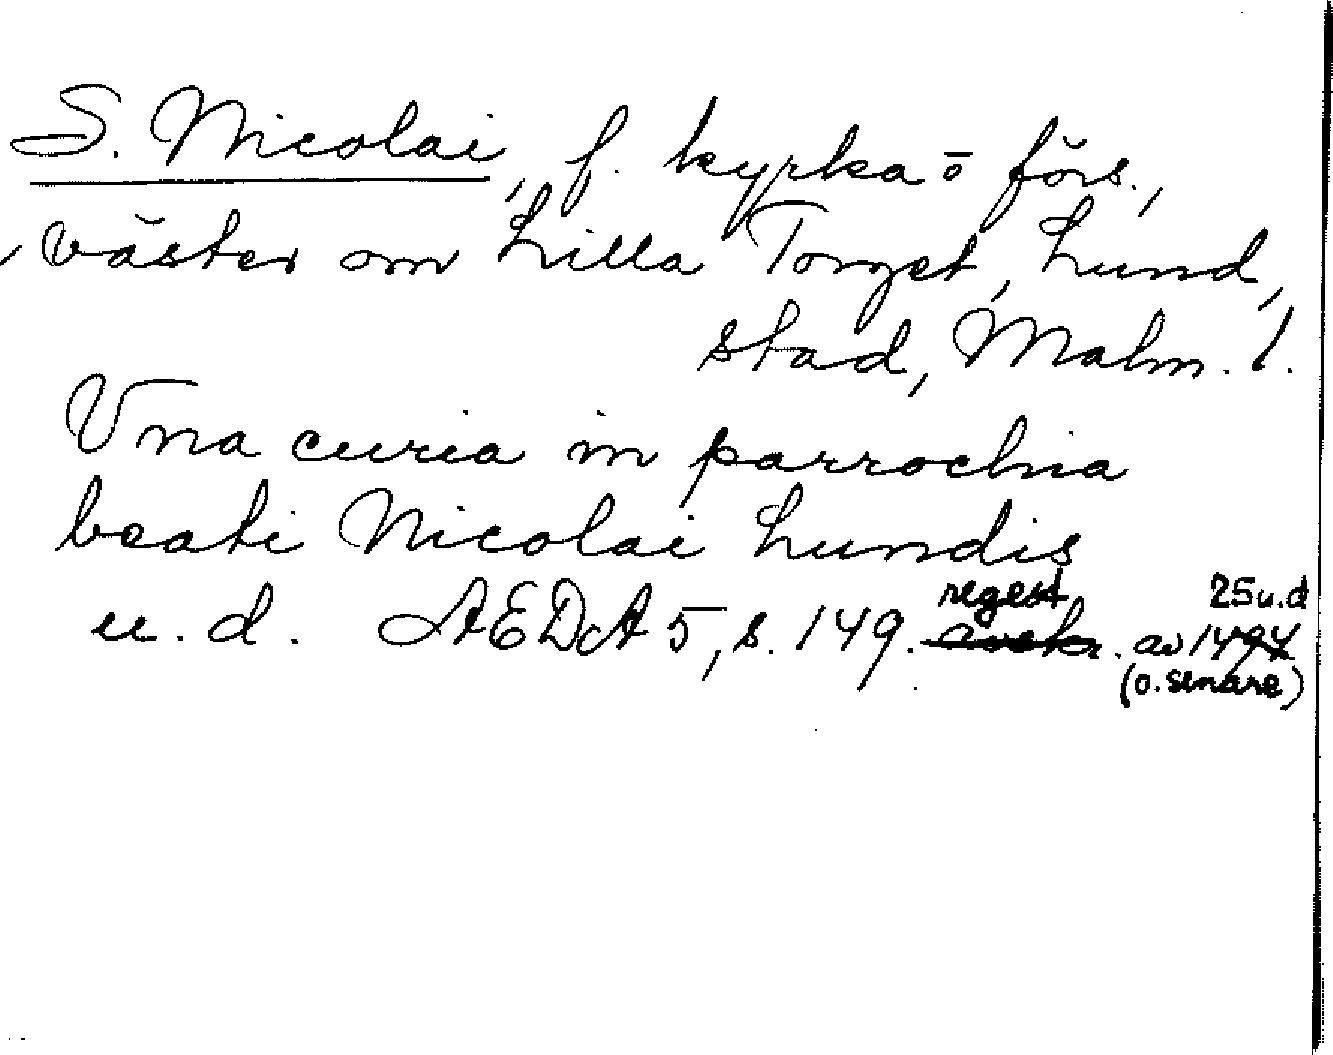 S. Nicolai, f. kyrka o förs.,
väster om Lilla Torget, Lund,
stad, Malm. l.
Una curia in parrochia
beati Nicolai Lundis
regest 25 u.d
u. d. ÆDA 5, s. 149. avskr. av 1494
(o. senare)